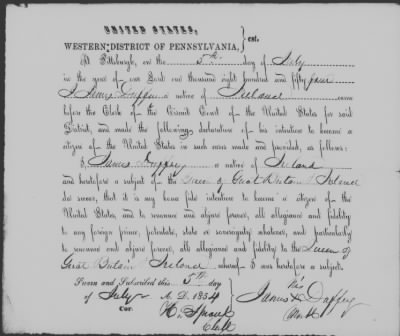 UNITED STATES,
WESTERN DISTRICT OF PENNSYLVANIA, } sct.
At Pittsburgh, on the 5th day of July
in the year of our Lord one thousand eight hundred and fifty four
James Duffey a native of Ireland came
before the Clerk of the Circuit Court of the United States for said
District, and made the following declaration of his intention to become a
citizen of the United States in such case made and provided, as follows:
I, James Duffey a native of Ireland
and heretofore a subject of the Queen of Great Britain & Ireland
do swear, that it is my bona fide intention to become a citizen of the
United States, and to renounce and abjure forever, all allegiance and fidelity
to any foreign prince, potentate, state or sovereignty whatever, and particularly
to renounce and abjure forever, all allegiance and fidelity to the Queen of
Great Britain Ireland whereof I was heretofore a subject.
Sworn and Subscribed this 5th day
of July A. D. 1854
Cor: H. Sproul
Clerk
his
James X Duffey
Mark